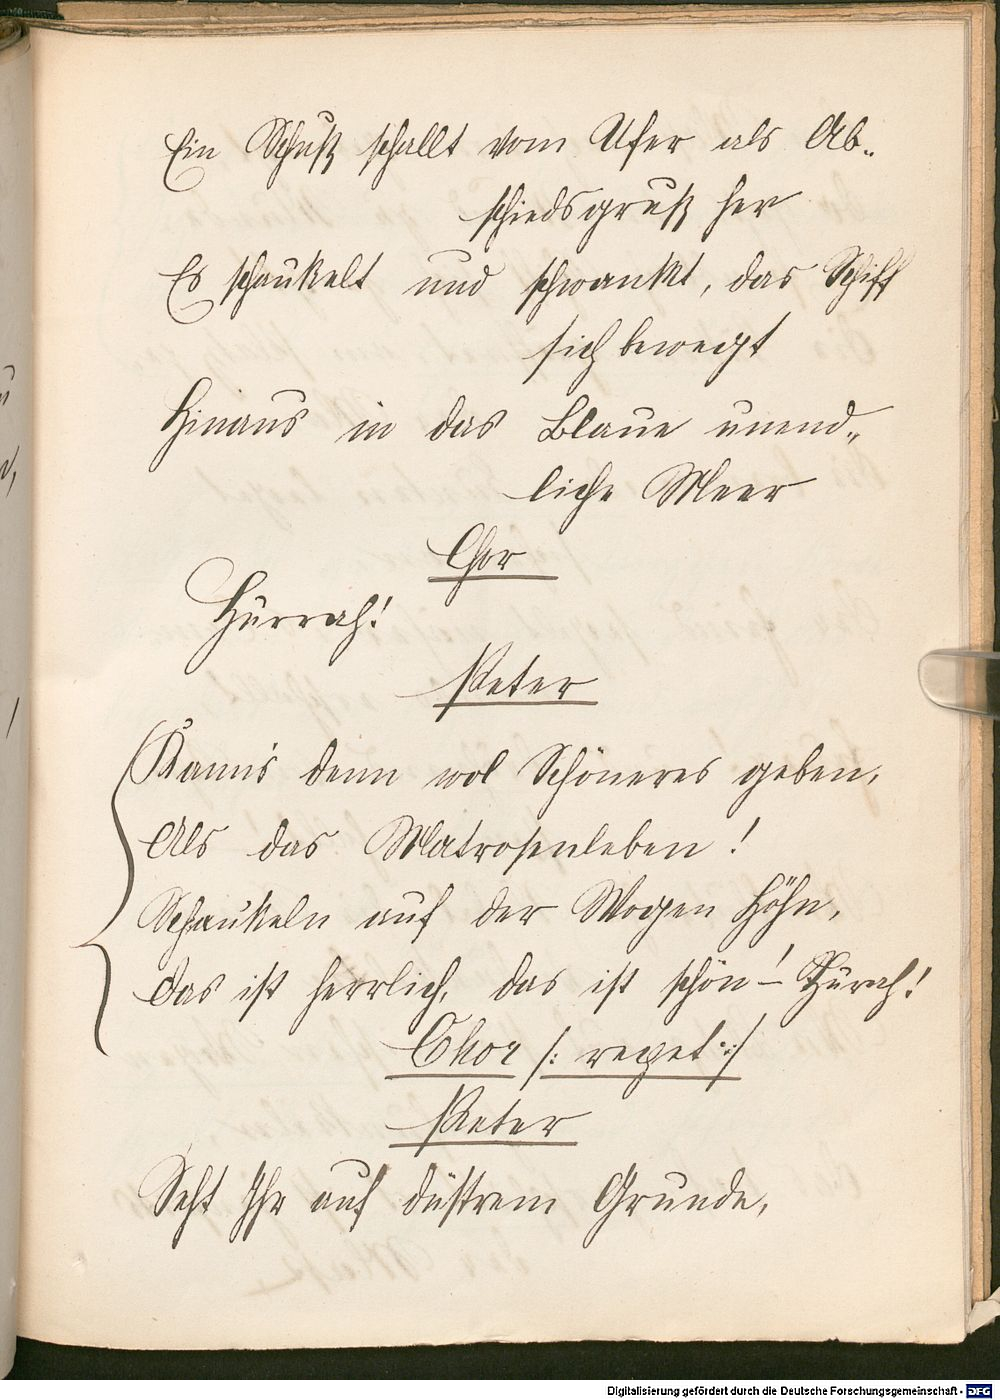 Ein Schuß schallt vom Ufer als Ab-
schiedsgruß her
Es schaukelt und schwankt, das Schiff
sich bewegt
Hinaus in das Blaue unend-
liche Meer
Chor
Hurrah!
Peter
Kann's denn wol Schöneres geben,
Als das Matrosenleben!
Schaukeln auf der Wogen Höhn,
Das ist herrlich, das ist schön! – Hurah!
Chor /: repet :/
Peter
Seht Ihr auf düstrem Grunde,
Digitalisierung gefördert durch die Deutsche Forschungsgemeinschaft - DFG